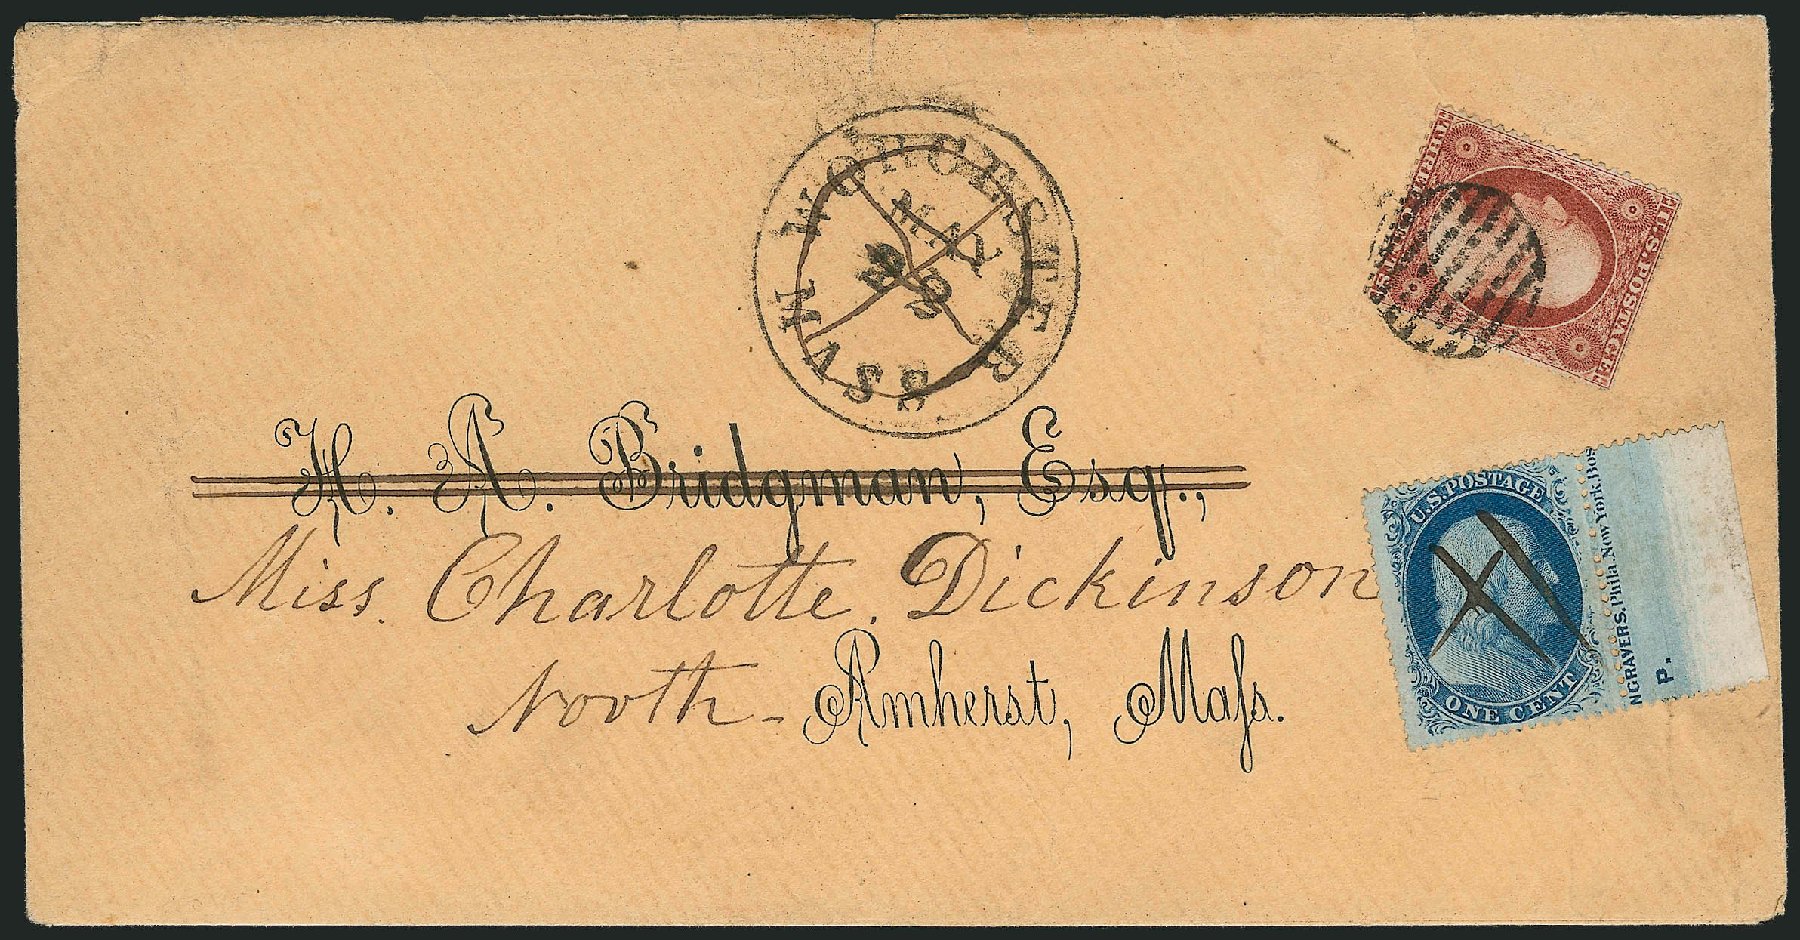 WORCESTER MASS
MAY
22
U.S. POSTAGE
THREE CENTS
H. A. Bridgman, Esq.,
Miss. Charlotte. Dickinson
North - Amherst, Maſs.
U.S. POSTAGE
ONE CENT
NGRAVERS. Phila. New York. Bos
P.